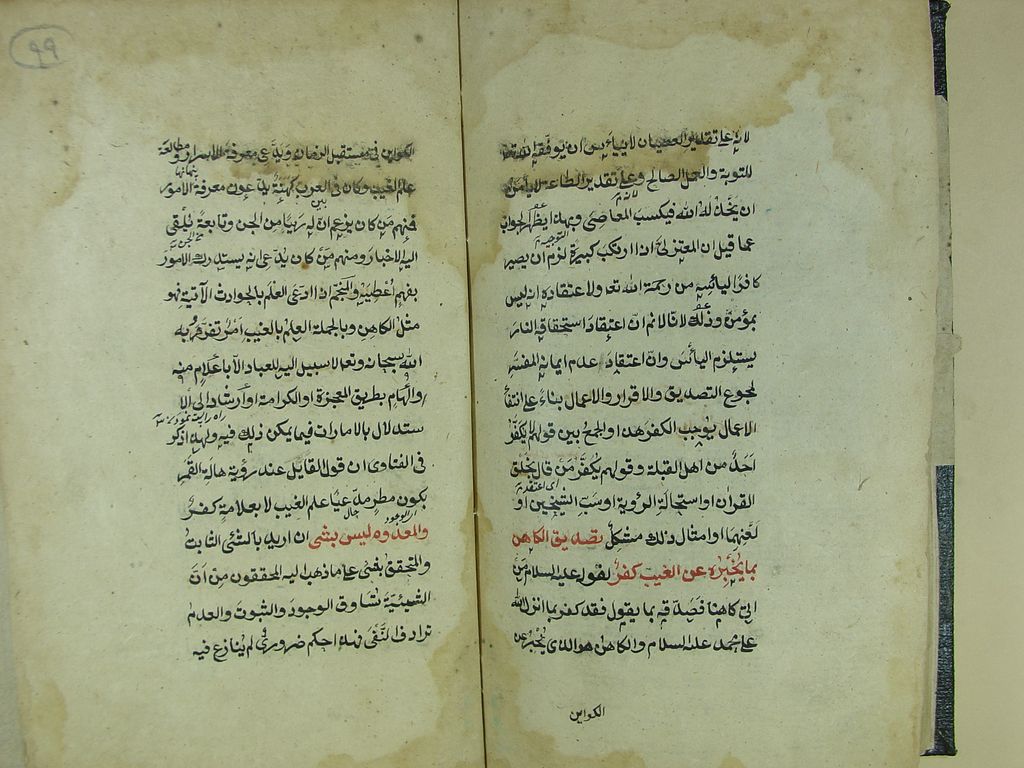 لانه على تقدير العصيان لا ييأس ان يوفقه الله تعا
للتوبة والعمل الصالح وعلى تقدير الطاعة لا يأمن
لانه م
ان يخذله الله فيكسب المعاصي وبهذا يظهر الجواب
عما قيل ان المعتزلى اذا ارتكب كبيرة لزم ان يصير
كافرا ليائسه من رحمة الله تعا ولاعتقاده انه ليس
بمؤمن وذلك لانا لا نم ان اعتقاد استحقاقه النار
يستلزم اليأس وان اعتقاد عدم ايمانه المفسر
لمجموع التصديق والاقرار والاعمال بناء على انتفا
الاعمال يوجب الكفر هذا والجمع بين قولهم لا يكفر
احد من اهل القبلة وقولهم يكفر من قال بخلق
القران او استحالة الرؤية او سب الشيخين او
لعنهما او امثال ذلك مشكل تصديق الكاهن
بما يخبره عن الغيب كفر لقوله عليه السلام من
اتى كاهنا فصدقه بما يقول فقد كفر بما انزل الله
على محمد عليه السلام والكاهن هو الذي يخبر عن
الكواين
الكواين في مستقبل الزمان ويدعى معرفة الاسرار ومطالعة
علم الغيب وكان في العرب كهنة يدعون معرفة الامور
فمنهم من كان يزعم ان له رئيا من الجن وتابعة يلقى
اليه الاخبار ومنهم من كان يدعى انه يستدرك الامور
بفهم اعطيه والمنجم اذا ادعى العلم بالحوادث الآتية فهو
مثل الكاهن وبالجملة العلم بالغيب امر تفرد به
الله سبحانه وتعا لا سبيل اليه للعباد الا باعلام منه
والهام بطريق المعجزة او الكرامة او ارشاد الى الا
ستدلال بالامارات فيما يمكن ذلك فيه ولهذا ذكر
في الفتاوى ان قول القايل عند رؤية هالة القمر
يكون مطر مدعيا علم الغيب لا بعلامة كفر
والمعدوم ليس بشى ان اريد بالشئ الثابت
والمتحقق بغنى على ما ذهب اليه المحققون من ان
الشيئية تساوق الوجود والثبوت والعدم
ترادف النفى فهذا حكم ضروري لم ينازع فيه
٩٩